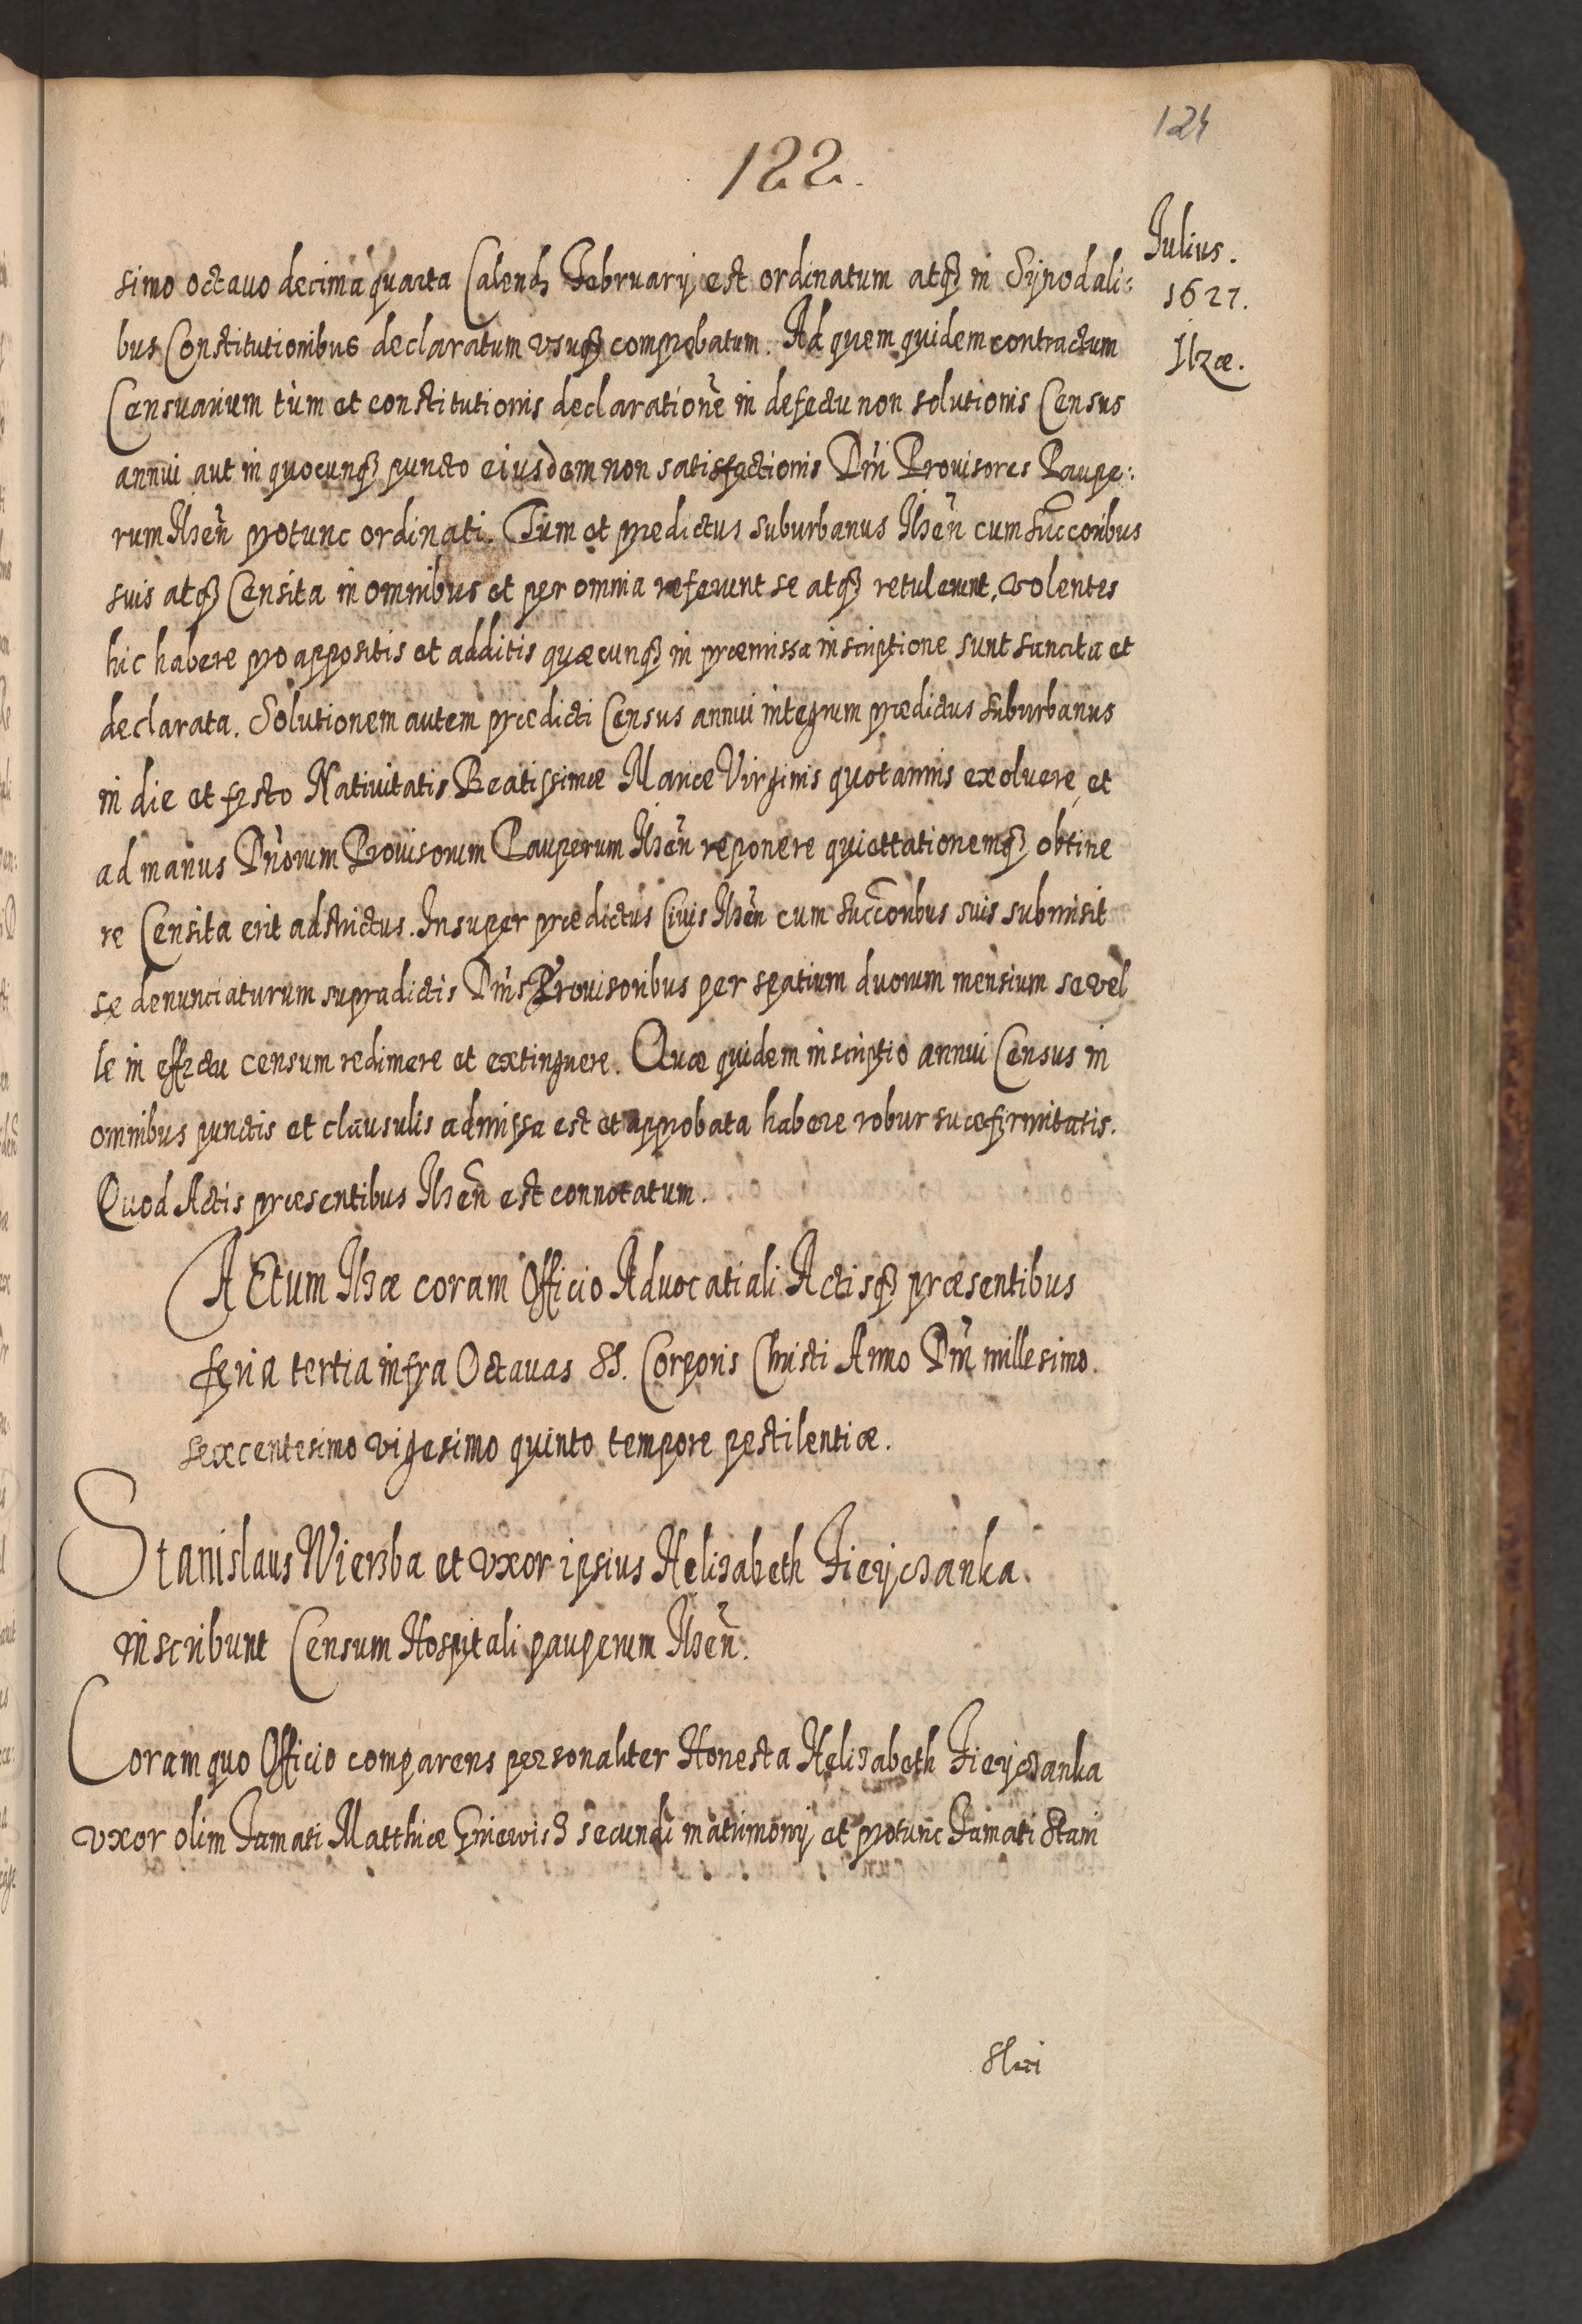 124
122.
Iulius.
1627.
Ilzæ.
simo octauo decima quarta Calend. Februarij est ordinatum atq3 in Synodali:
bus Constitutionibus declaratum vsuq3 comprobatum. Ad quem quidem contractum
Censuarium tùm et constitutionis declarationẽ in defectu non solutionis Census
annui aut in quocunq3 puncto eiusdem non satisfactionis Dñi Prouisores Paupe:
rum Ilzeñ protunc ordinati. Tum et predictus suburbanus Ilzeñ cum succoribus
suis atq3 Censita in omnibus et per omnia referunt se atq3 retulerunt, volentes
hic habere pro appositis et additis quæcunq3 in præmissa inscriptione sunt sancita et
declarata. Solutionem autem prædicti Census annui integrum prædictus suburbanus
in die et festo Natiuitatis Beatissimæ Mariæ Virginis quotannis exoluere, et
ad manus Dñorum Prouisorum Pauperum Ilzeñ reponere quiettationemq3 obtine
re Censita erit adstrictus. Insuper prædictus Ciuis Ilzeñ cum succoribus suis submisit
se denunciaturum supradictis Dñis Prouisoribus per spatium duorum mensium se vel
le in effectu censum redimere et extinguere. Quæ quidem inscriptio annui Census in
omnibus punctis et clausulis admissa est et approbata habere robur suæ firmitatis.
Quod Actis præsentibus Ilzeñ est connotatum.
ACtum Ilzæ coram Officio Aduocatiali Actisq3 præsentibus
feria tertia infra Octauas SS. Corporis Christi Anno Dñi millesimo
sexcentesimo vigesimo quinto tempore pestilentiæ.
Stanislaus Wierzba et vxor ipsius Helizabeth Fieyczanka
inscribunt Censum Hospitali pauperum Ilzeñ.
Coram quo Officio comparens personaliter Honesta Helizabeth Fieyczanka
vxor olim Famati Matthiæ Gniewisz secundi matrimonij et protunc Famati Stani
slai